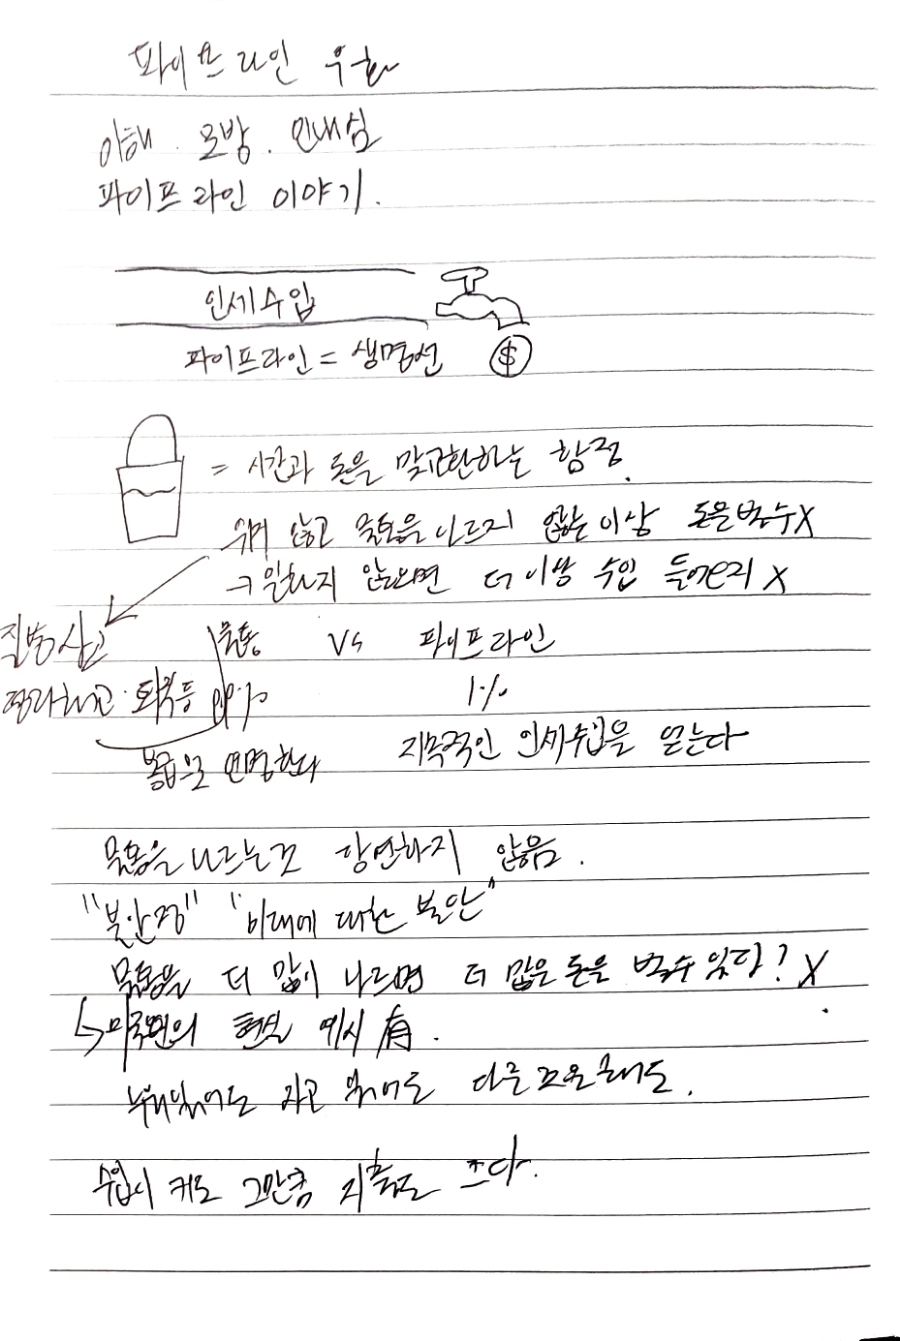 파이프라인 우화
이해. 모방. 인내심
파이프라인 이야기.
인세수입
파이프라인 = 생명선
$
= 시간과 돈을 맞교환하는 함정.
쉬지 않고 물통을 나르지 않는 이상 돈을 벌수 X
일하지 않으면 더이상 수입 들어오지 X
질병, 사고
정리해고. 퇴직등
물통 VS 파이프라인
99% 1%
봉급으로 연명한다
지속적인 인세수입을 얻는다
물통을 나르는것 당연하지 않음.
"불안정" "미래에 대한 불안"
물통을 더 많이 나르면 더 많은 돈을 벌수 있다? X
↳ 의 현실 예시 有.
누워있어도 자고 있어도 다른것을 해도.
수입이 커도 그만큼 지출도 크다.